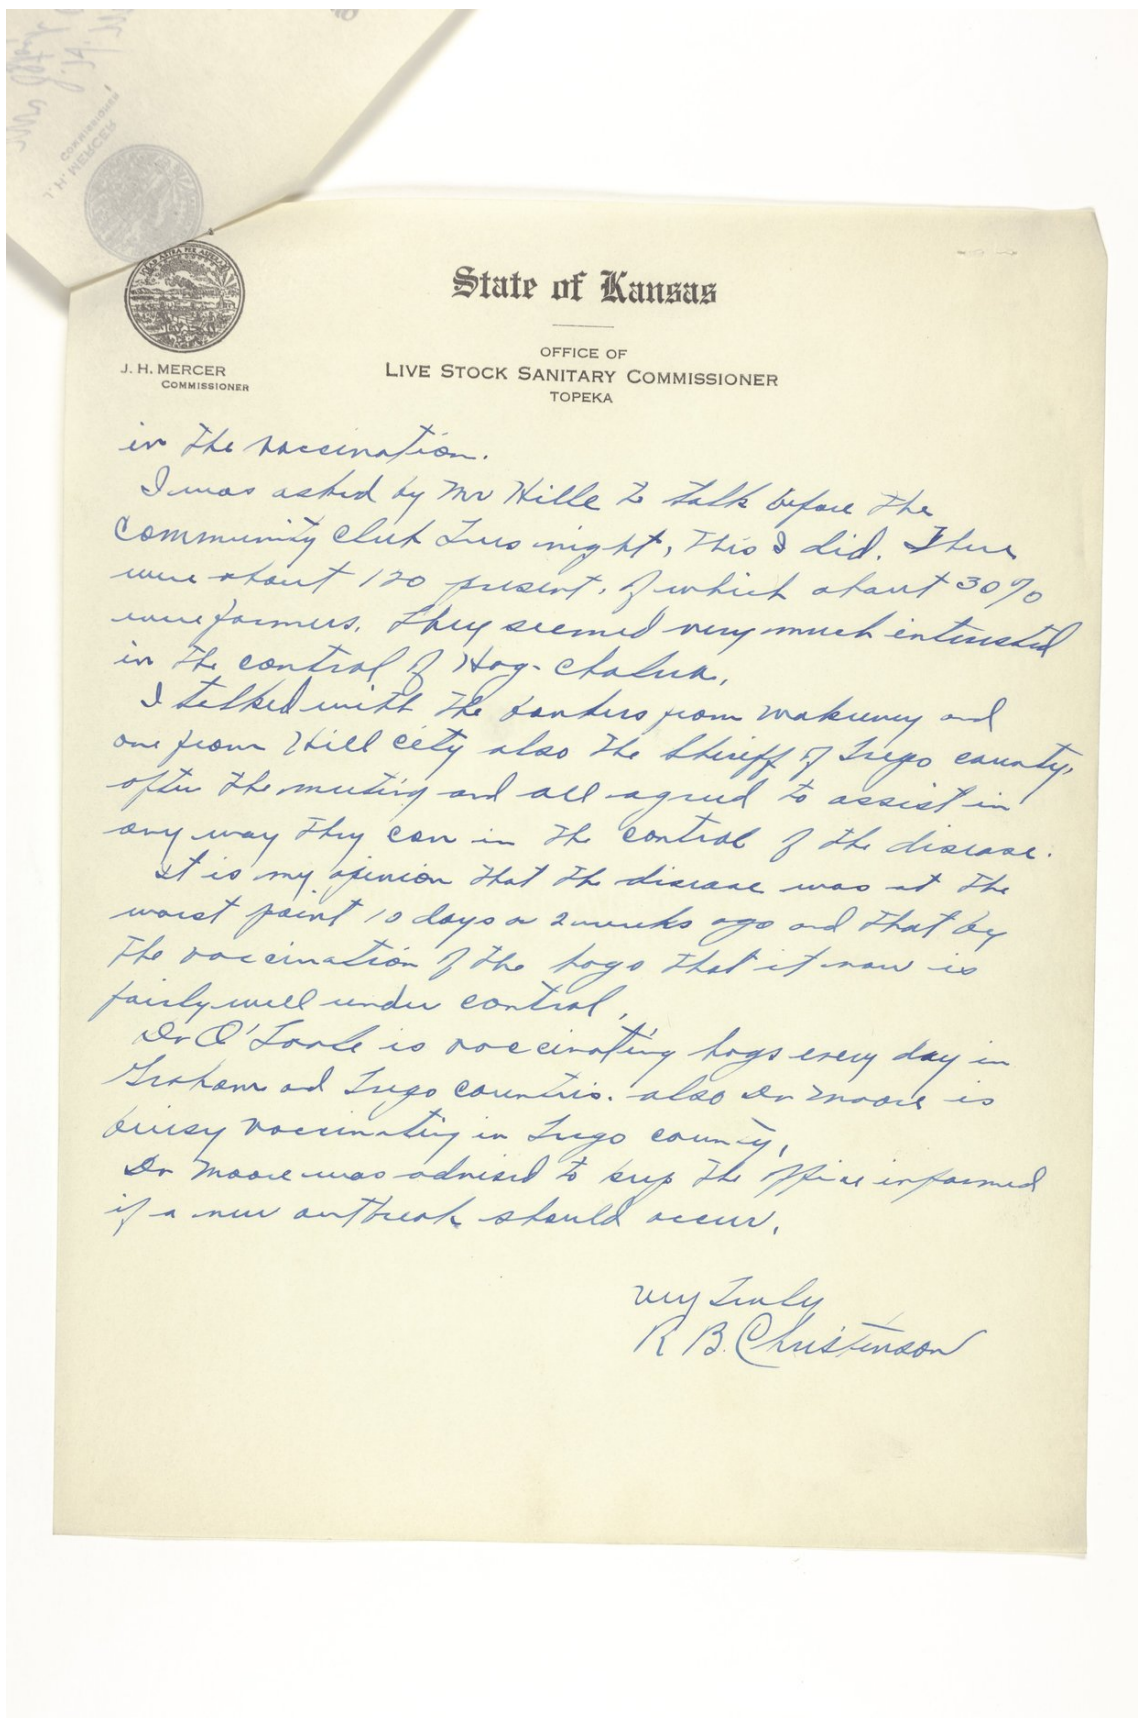 State of Kansas
OFFICE OF
LIVE STOCK SANITARY COMMISSIONER
TOPEKA
J. H. MERCER
COMMISSIONER
in the vaccination.
I was asked by Mr Hille to talk before the
Community Club Tues night, this I did. There
were about 120 present, of which about 30%
were farmers. They seemed very much interested
in the control of Hog-Cholera.
I talked with the bankers from Wakeeney and
one from Hill City also the Sheriff of Trego county,
after the meeting and all agreed to assist in
any way they can in the control of the disease.
It is my opinion that the disease was at the
worst point 10 days or 2 weeks ago and that by
the vaccination of the hogs that it now is
fairly well under control.
Dr O'Toole is vaccinating hogs every day in
Graham and Trego counties. also Dr Moore is
buisy vaccinating in Trego county.
Dr Moore was advised to keep the office informed
if a new outbreak should occur.
Very Truly
R B. Christenson
J. H. MERCER
COMMISSIONER